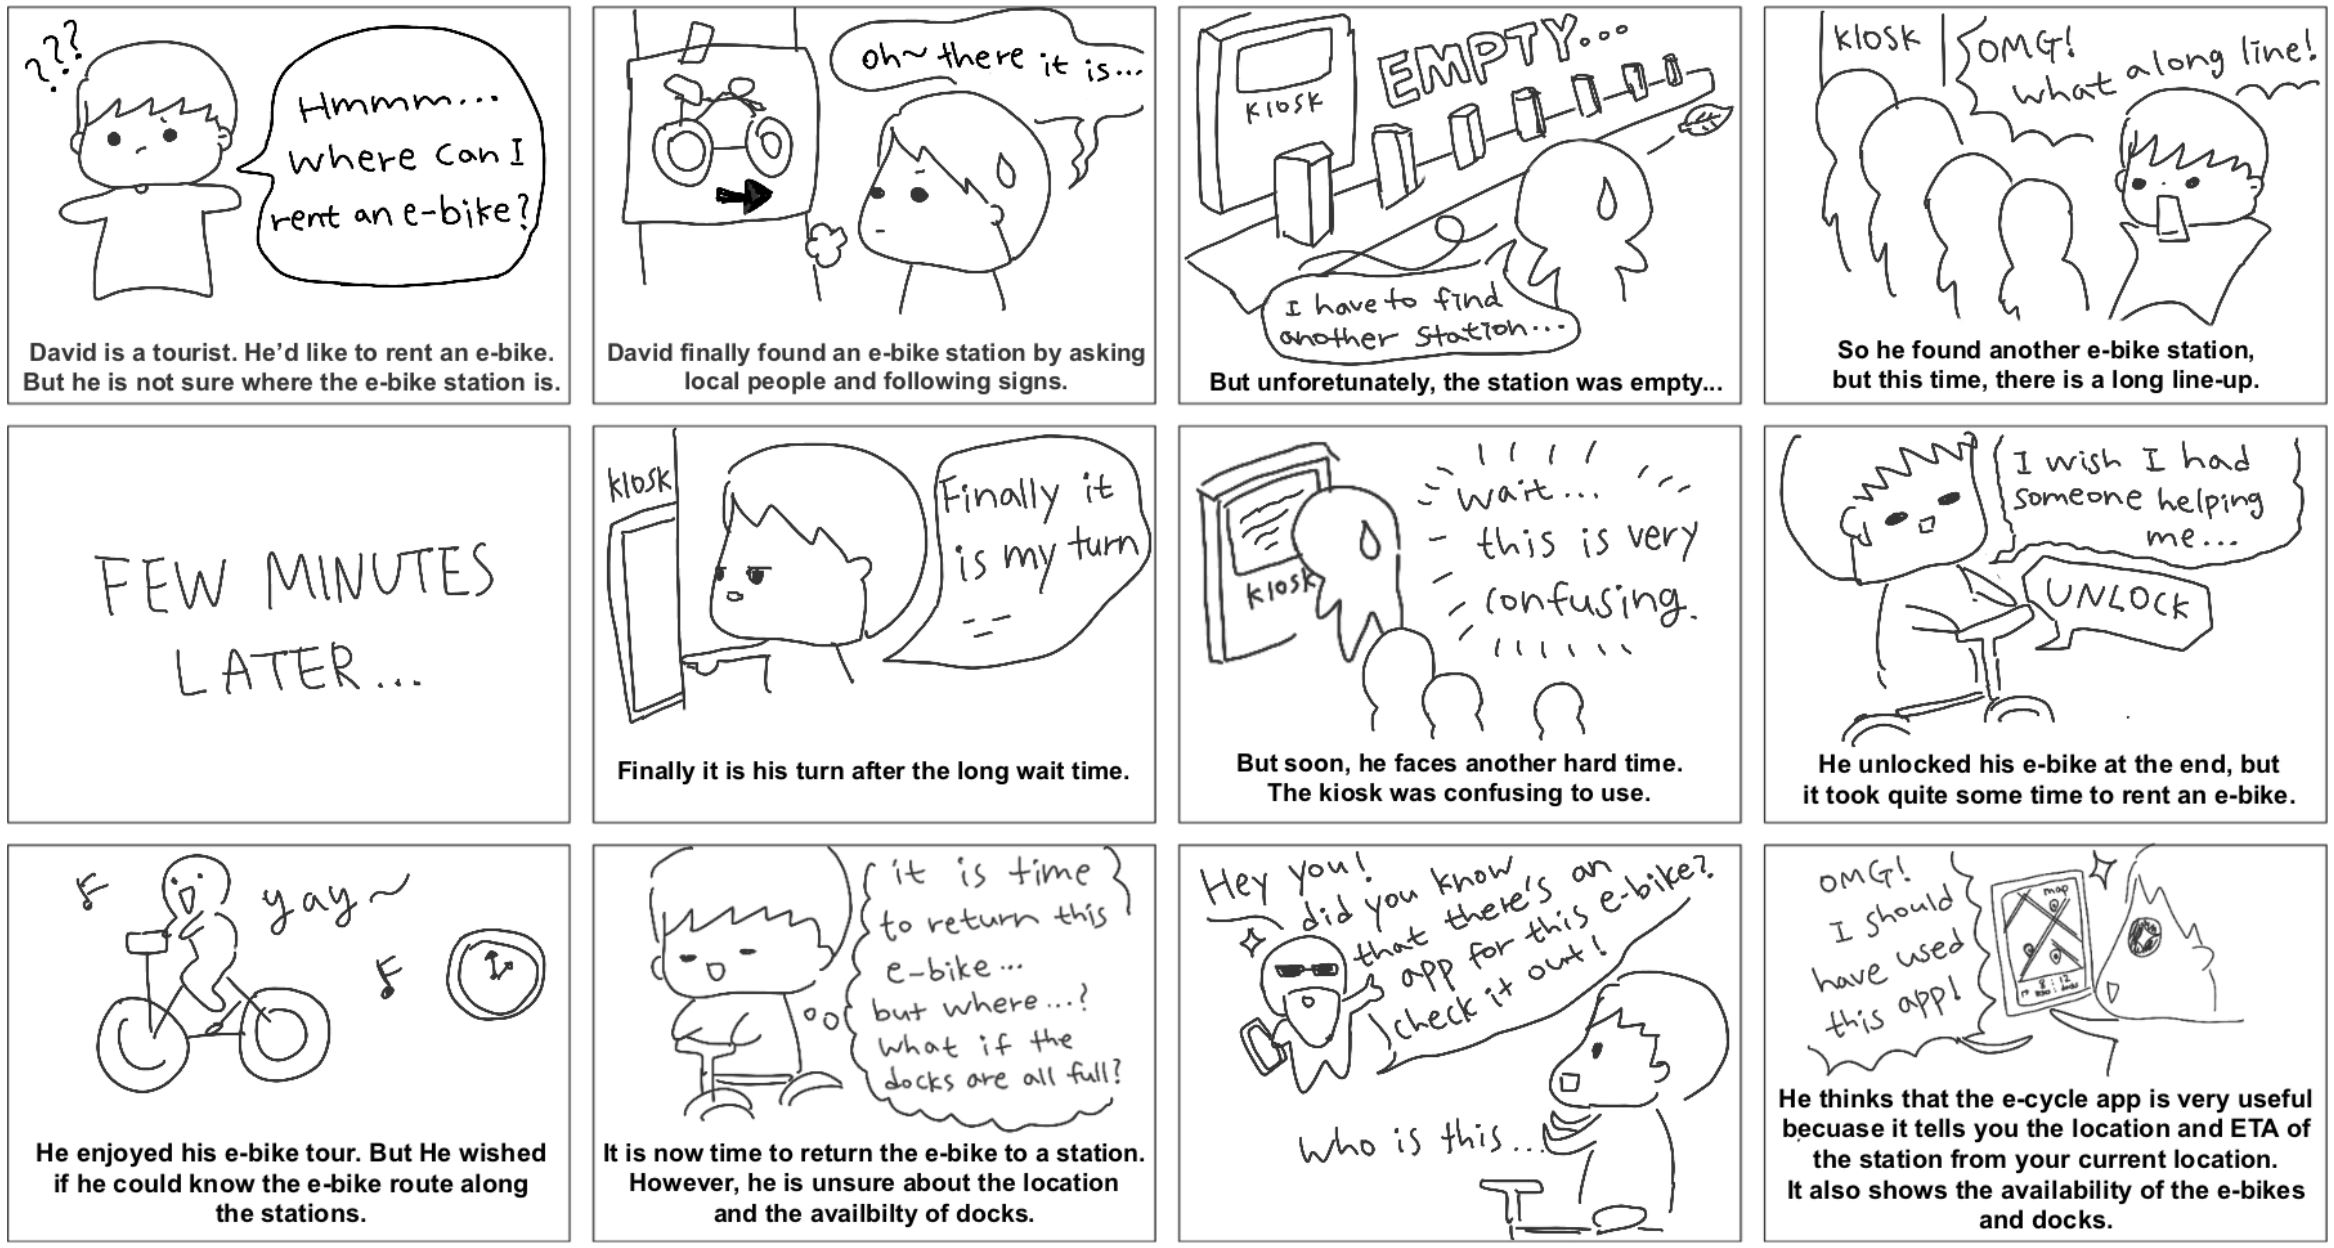 ???
Hmmm...
where can I
rent an e-bike?
David is a tourist. He'd like to rent an e-bike.
But he is not sure where the e-bike station is.
oh~ there it is...
David finally found an e-bike station by asking
local people and following signs.
KIOSK
EMPTY...
I have to find
another station...
But unforetunately, the station was empty...
KIOSK
OMG!
what along line!
So he found another e-bike station,
but this time, there is a long line-up.
FEW MINUTES
LATER...
KIOSK
Finally it
is my turn
Finally it is his turn after the long wait time.
KIOSK
wait...
this is very
confusing.
But soon, he faces another hard time.
The kiosk was confusing to use.
I wish I had
someone helping
me...
UNLOCK
He unlocked his e-bike at the end, but
it took quite some time to rent an e-bike.
yay~
He enjoyed his e-bike tour. But He wished
if he could know the e-bike route along
the stations.
it is time
to return this
e-bike...
but where...?
what if the
docks are all full?
It is now time to return the e-bike to a station.
However, he is unsure about the location
and the availbilty of docks.
Hey you!
did you know
that there's an
app for this e-bike?
check it out!
Who is this...
OMG!
I should
have used
this app!
map
8 : 12
He thinks that the e-cycle app is very useful
becuase it tells you the location and ETA of
the station from your current location.
It also shows the availability of the e-bikes
and docks.